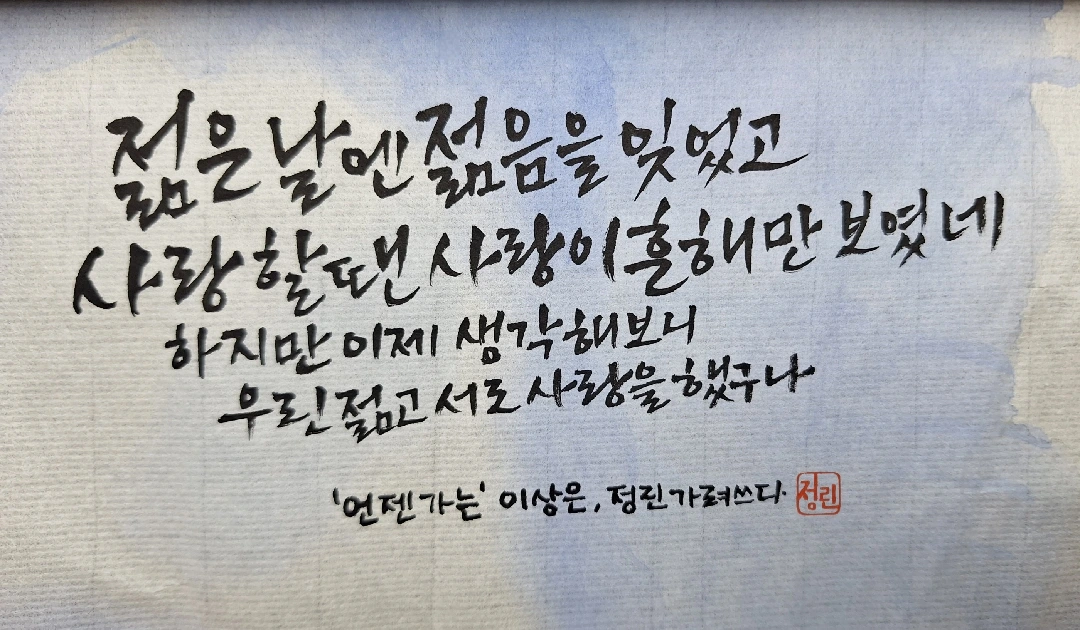 젊은 날엔 젊음을 잊었고
사랑할 땐 사랑이 흔해만 보였네
하지만 이제 생각해보니
우린 젊고 서로 사랑을 했구나
'언젠가는' 이상은, 정린 가려쓰다.
정린